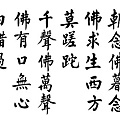 朝念佛暮念
佛求生西方
莫蹉跎
千聲佛萬聲
佛有口無心